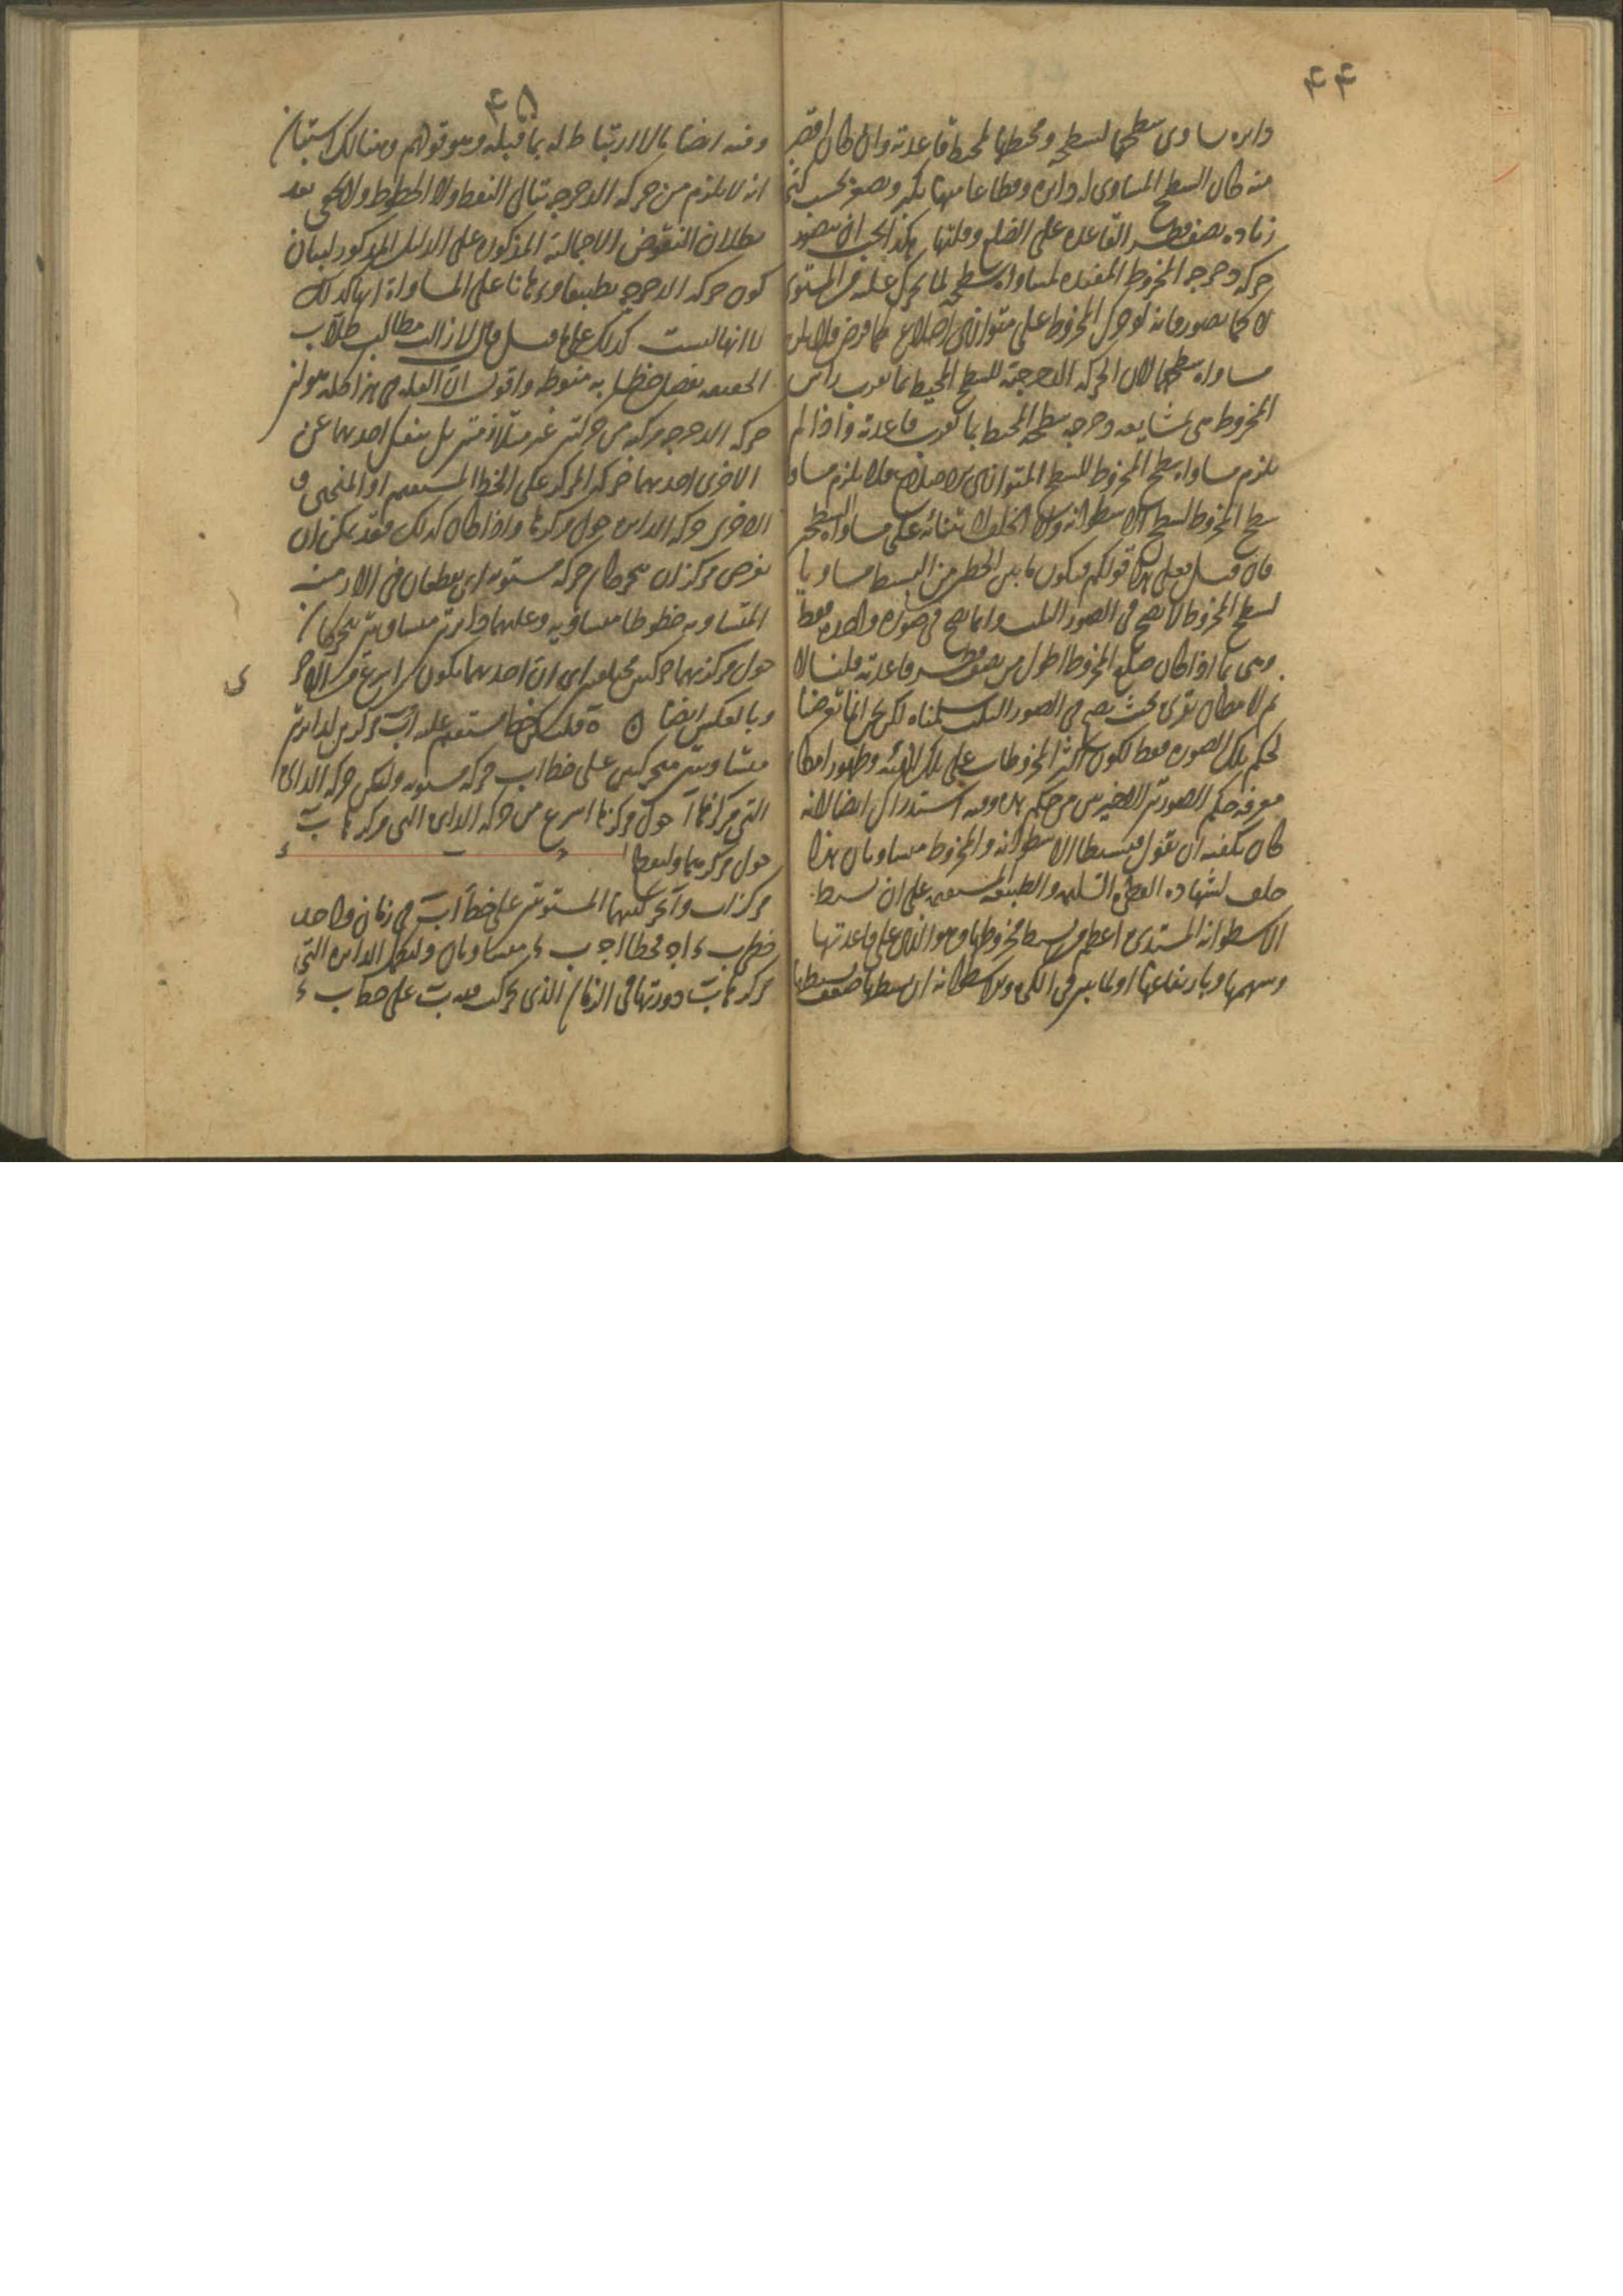 ۴۴
دايره يساوى سطحها لسطحه ومحيطها لمحيط قاعدته وان كان اقصر
منه كان السطح المساوى له دايره وقطاعا منها يكبر ويصغر بحسب كثرة
زياده نصف قطر القاعده على الضلع وقلتها هكذا يجب ان يتصور
حركه دحرجه المخروط المفيده لمساواه سطحه لما يتحرك عليه من المستوى
لا كما تصور فانه لو حرك المخروط على متوازى اضلاع كما فرض فلا
مساواه سطحهما لان الحركه الدحرجيه للسطح المحيط بما يقرب راس
المخروط هى بمشايعه دحرجه سطحه المحيط بما يقرب قاعدته واذا لم
يلزم مساواه سطح المخروط للسطح المتوازى الاضلاع فلا يلزم مساواه
سطح المخروط لسطح الاسطوانه ولا الخلف لابتنائه على مساواه السطحين
فان قيل فعلى هذا قولكم فيكون ما بين الخطين من البسيط مساويا
لسطح المخروط لا يصح فى الصور الثلث وانما يصح فى صوره واحده فقط
وهى ما اذا كان ضلع المخروط اطول من نصف قطر قاعدته قلنا لا
ثم لا مطلق تقرى بحيث يصح فى الصور الثلث سلمناه لكن نحن انما تعرضنا
لحكم تلك الصوره فقط لكون اكثر المخروطات على تلك الهيئه وظهور امكان
معرفه حكم الصورتين الاخيرتين من حكم هذه وفيه استدراك ايضا لانه
كان يكفيه ان يقول فبسيطا الاسطوانه والمخروط متساويان هذا
خلف لشهاده الفطره السليمه والطبيعه المستقيمه على ان بسيط
الاسطوانه المستديره اعظم من بسيط مخروطها وهو الذى على قاعدتها
وسهمها وبارتفاعها او لما تبين فى الكره والاسطوانه ان بسيطها ضعف بسيطه
۴۵
وفيه ايضا مالا ارتباط له بما قبله وهو قولهم وهنالك استبان
انه لا يلزم من حركه الدحرجه تتالى النقط ولا الخطوط ولا يخفى بعد
بطلان النقوض الاجماليه المذكوره على الدليل المذكور لبيان
كون حركه الدحرجه تطبيقا وبرهانا على المساواة انها كذلك
لا انها ليست كذلك على ما قيل قال لا زالت مطالب طلاب
الحقيقه بفضل خطابه منوطه واقول ان العله فى هذا كله هو ان
حركه الدحرجه مركبه من حركتين غير متلازمتين بل ينفك احديهما عن
الاخرى احديهما حركه المركز على الخط المستقيم او المنحنى و
الاخرى حركه الدايره حول مركزها واذا كان كذلك فقد يمكن ان
نفرض مركزان يتحركان حركه مستويه اى يقطعان فى الازمنه
المتساويه خطوطا متساويه وعليهما دايرتين متساويتين يتحركان
حول مركزيهما حركتين مختلفتين اى ان احديهما يكون اسرع من الاخرى
وبالعكس ايضا ن ة فليكن خط مستقيم عليه اب مركزين لدايرتين
متساويتين متحركتين على خط اب حركه مستويه ولتكن حركه الدايره
التى مركزها آ حول مركزها اسرع من حركه الدايره التى مركزها ب
حول مركزيهما وليقطع
مركزا ب وآ بحركتيهما المستويتين على خط اب فى زمان واحد
خطى ب ء ا ج محطا ا ج ب ء متساويان ولتكمل الدايره التى
مركزها ب دورتها فى الزمان الذى تحركت فيه ب على خط ب ء